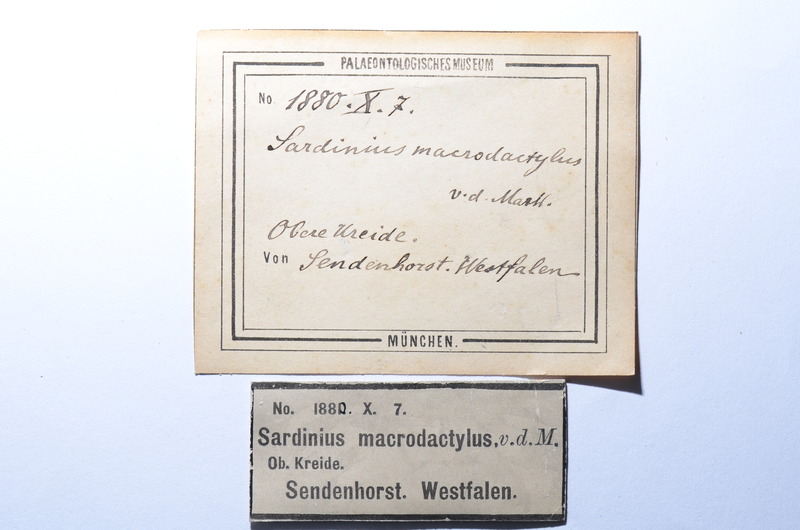 PALAEONTOLOGISCHES MUSEUM
No. 1880. X. 7.
Sardinius macrodactylus
v. d. Mark.
Obere Kreide.
Von Sendenhorst. Westfalen
MÜNCHEN.
No. 1880. X. 7.
Sardinius macrodactylus, v. d. M.
Ob. Kreide.
Sendenhorst. Westfalen.